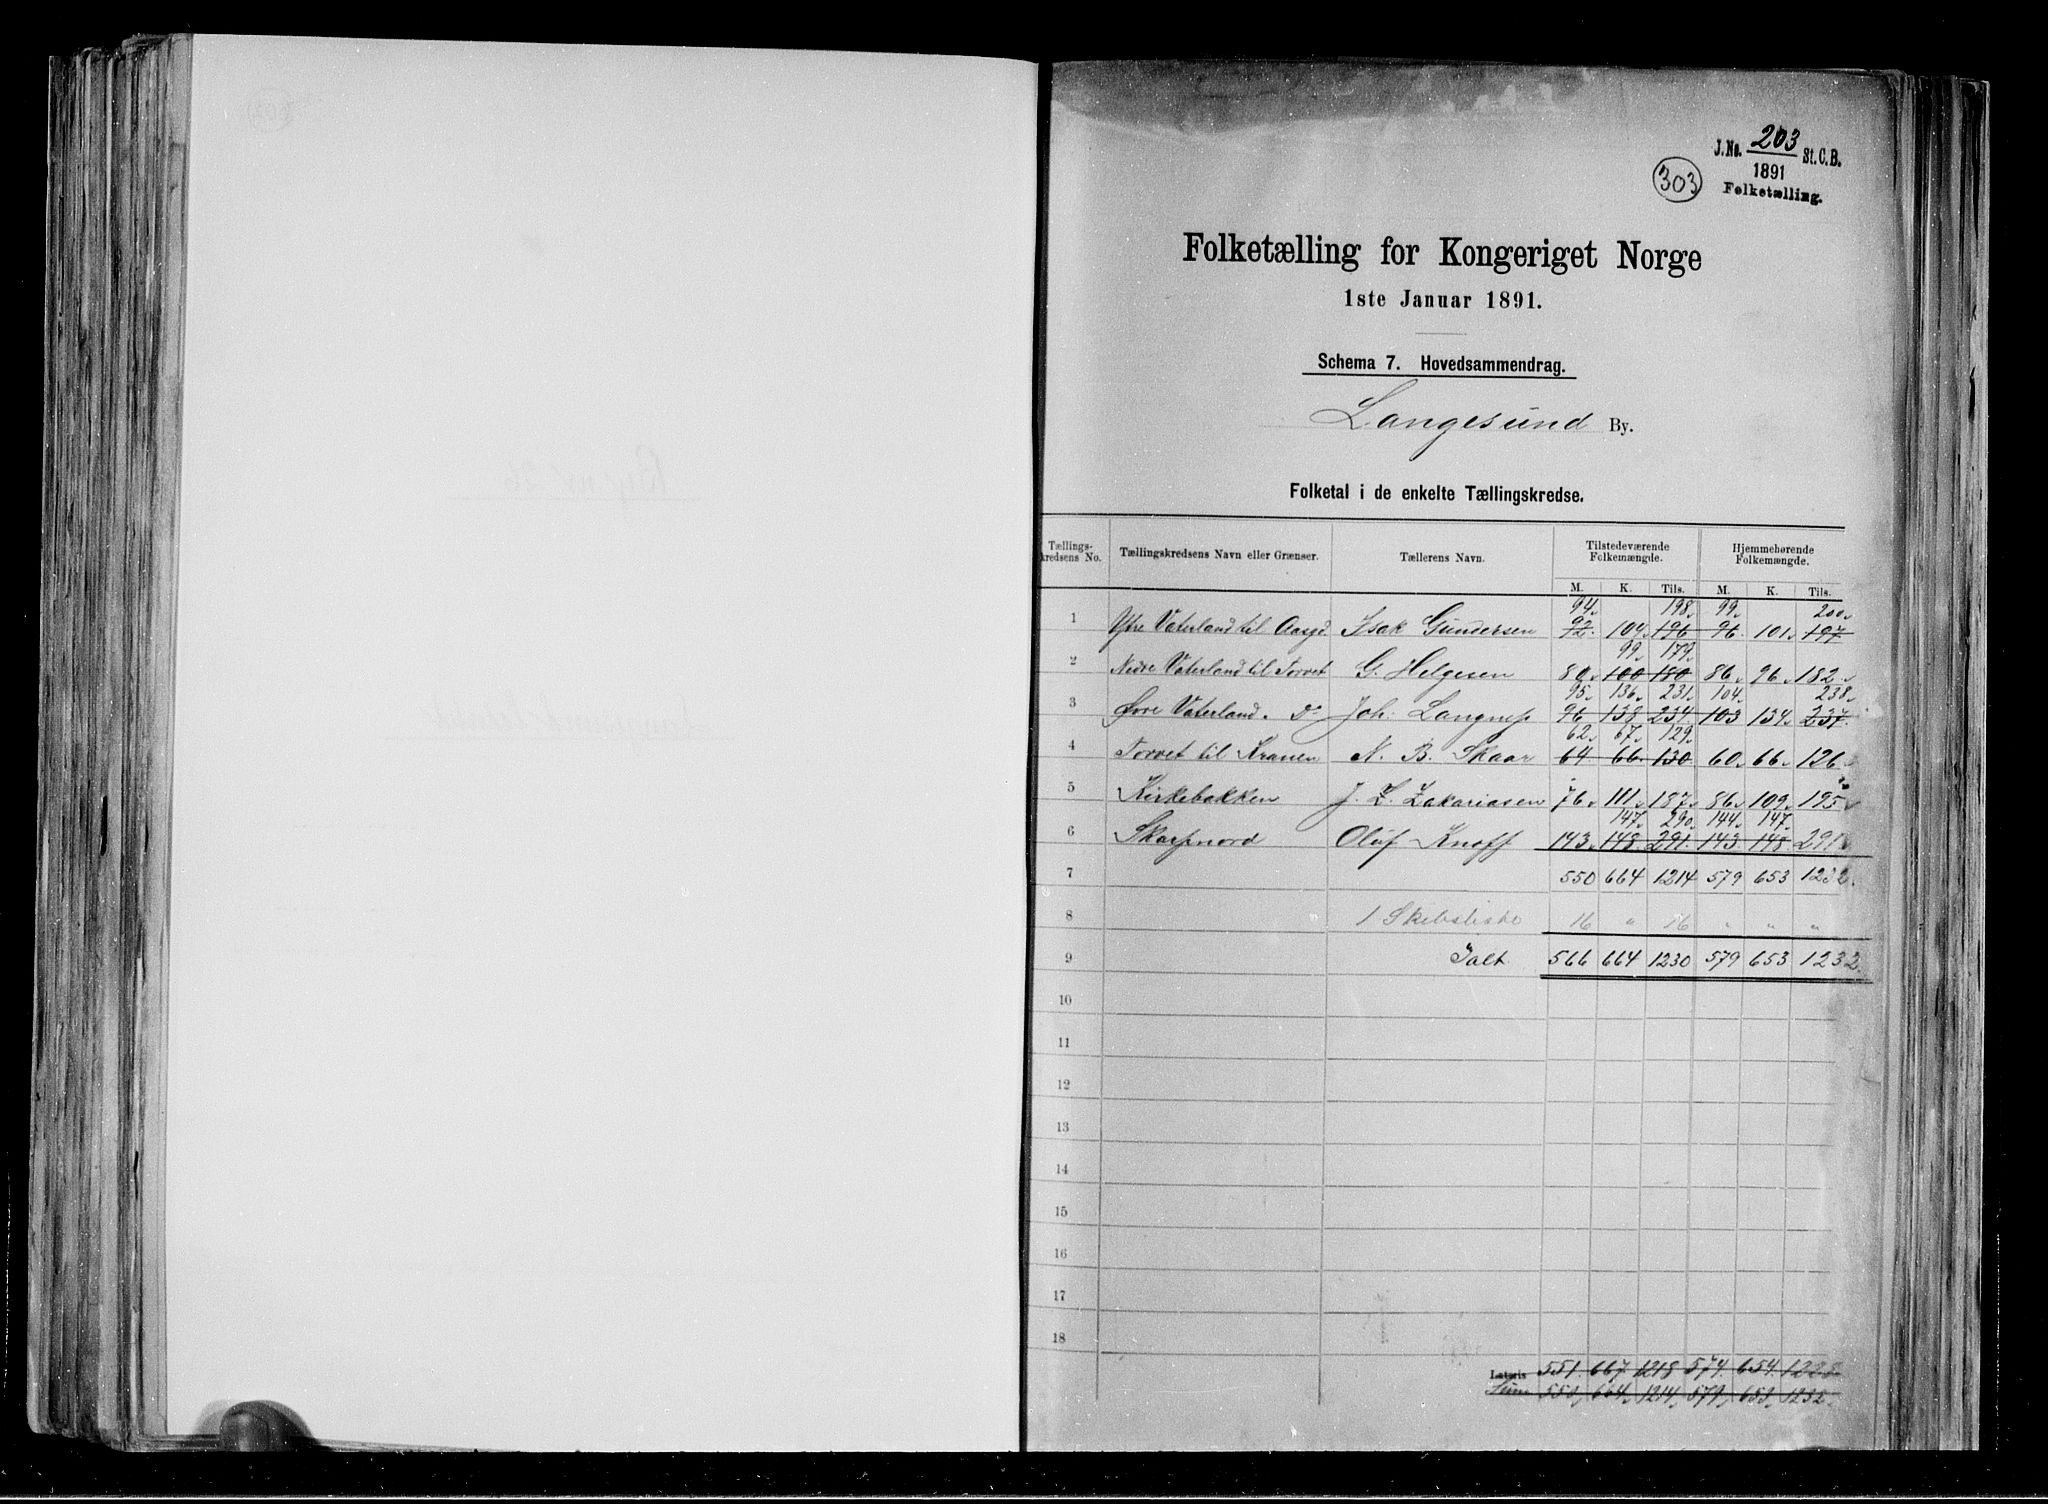 J. No. 203 St. C. B.
1891
Folketælling.
303
Folketælling for Kongeriget Norge
1ste Januar 1891.
Schema 7. Hovedsammendrag.
Langesund By.
Folketal i de enkelte Tællingskredse.
Tællings-kredsens No. Tællingskredsens Navn eller Grænser. Tællerens Navn. Tilstedeværende Folkemængde. Hjemmehørende Folkemængde.
M. K. Tils. M. K. Tils.
94. 198. 99. 200.
1 Ytre Vaterland til Aasgd. Isak Gundersen 92. 104. 196 96. 101. 197
99. 179.
2 Nedre Vaterland til Torvet G. Helgesen 80. 100 180 86. 96. 182.
95. 136. 231. 104. 238.
3 Øvre Vaterland. Do Joh. Langnes 96 138 234 103 134. 237.
62. 67. 129.
4 Torvet til Kranen N. B. Skaar 64 66. 130 60. 66. 126
5 Kirkebakken J. L. Zakariasen 76. 111. 187. 86. 109. 195
147. 290. 144. 147.
6 Skarpnord Oluf Knoff 143. 148. 291. 143. 148. 291
7 550 664 1214 579 653 1232.
8 1 Skibsliste 16 " 16 " " "
9 Ialt 566 664 1230 579 653 1232.
10
11
12
13
14
15
16
17
18
Lateris 551. 667. 1218 574. 654. 1228
Sum 550. 664. 1214. 579. 653. 1232.